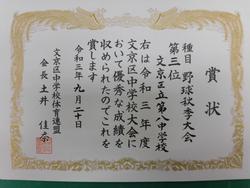 賞状
種目 野球秋季大会
第三位
文京区立第八中学校
右は令和三年度
文京区中学校大会に
おいて優秀な成績を
収められたのでこれを
賞します
令和三年九月二十日
文京区中学校体育連盟
会長 土井 佳奈